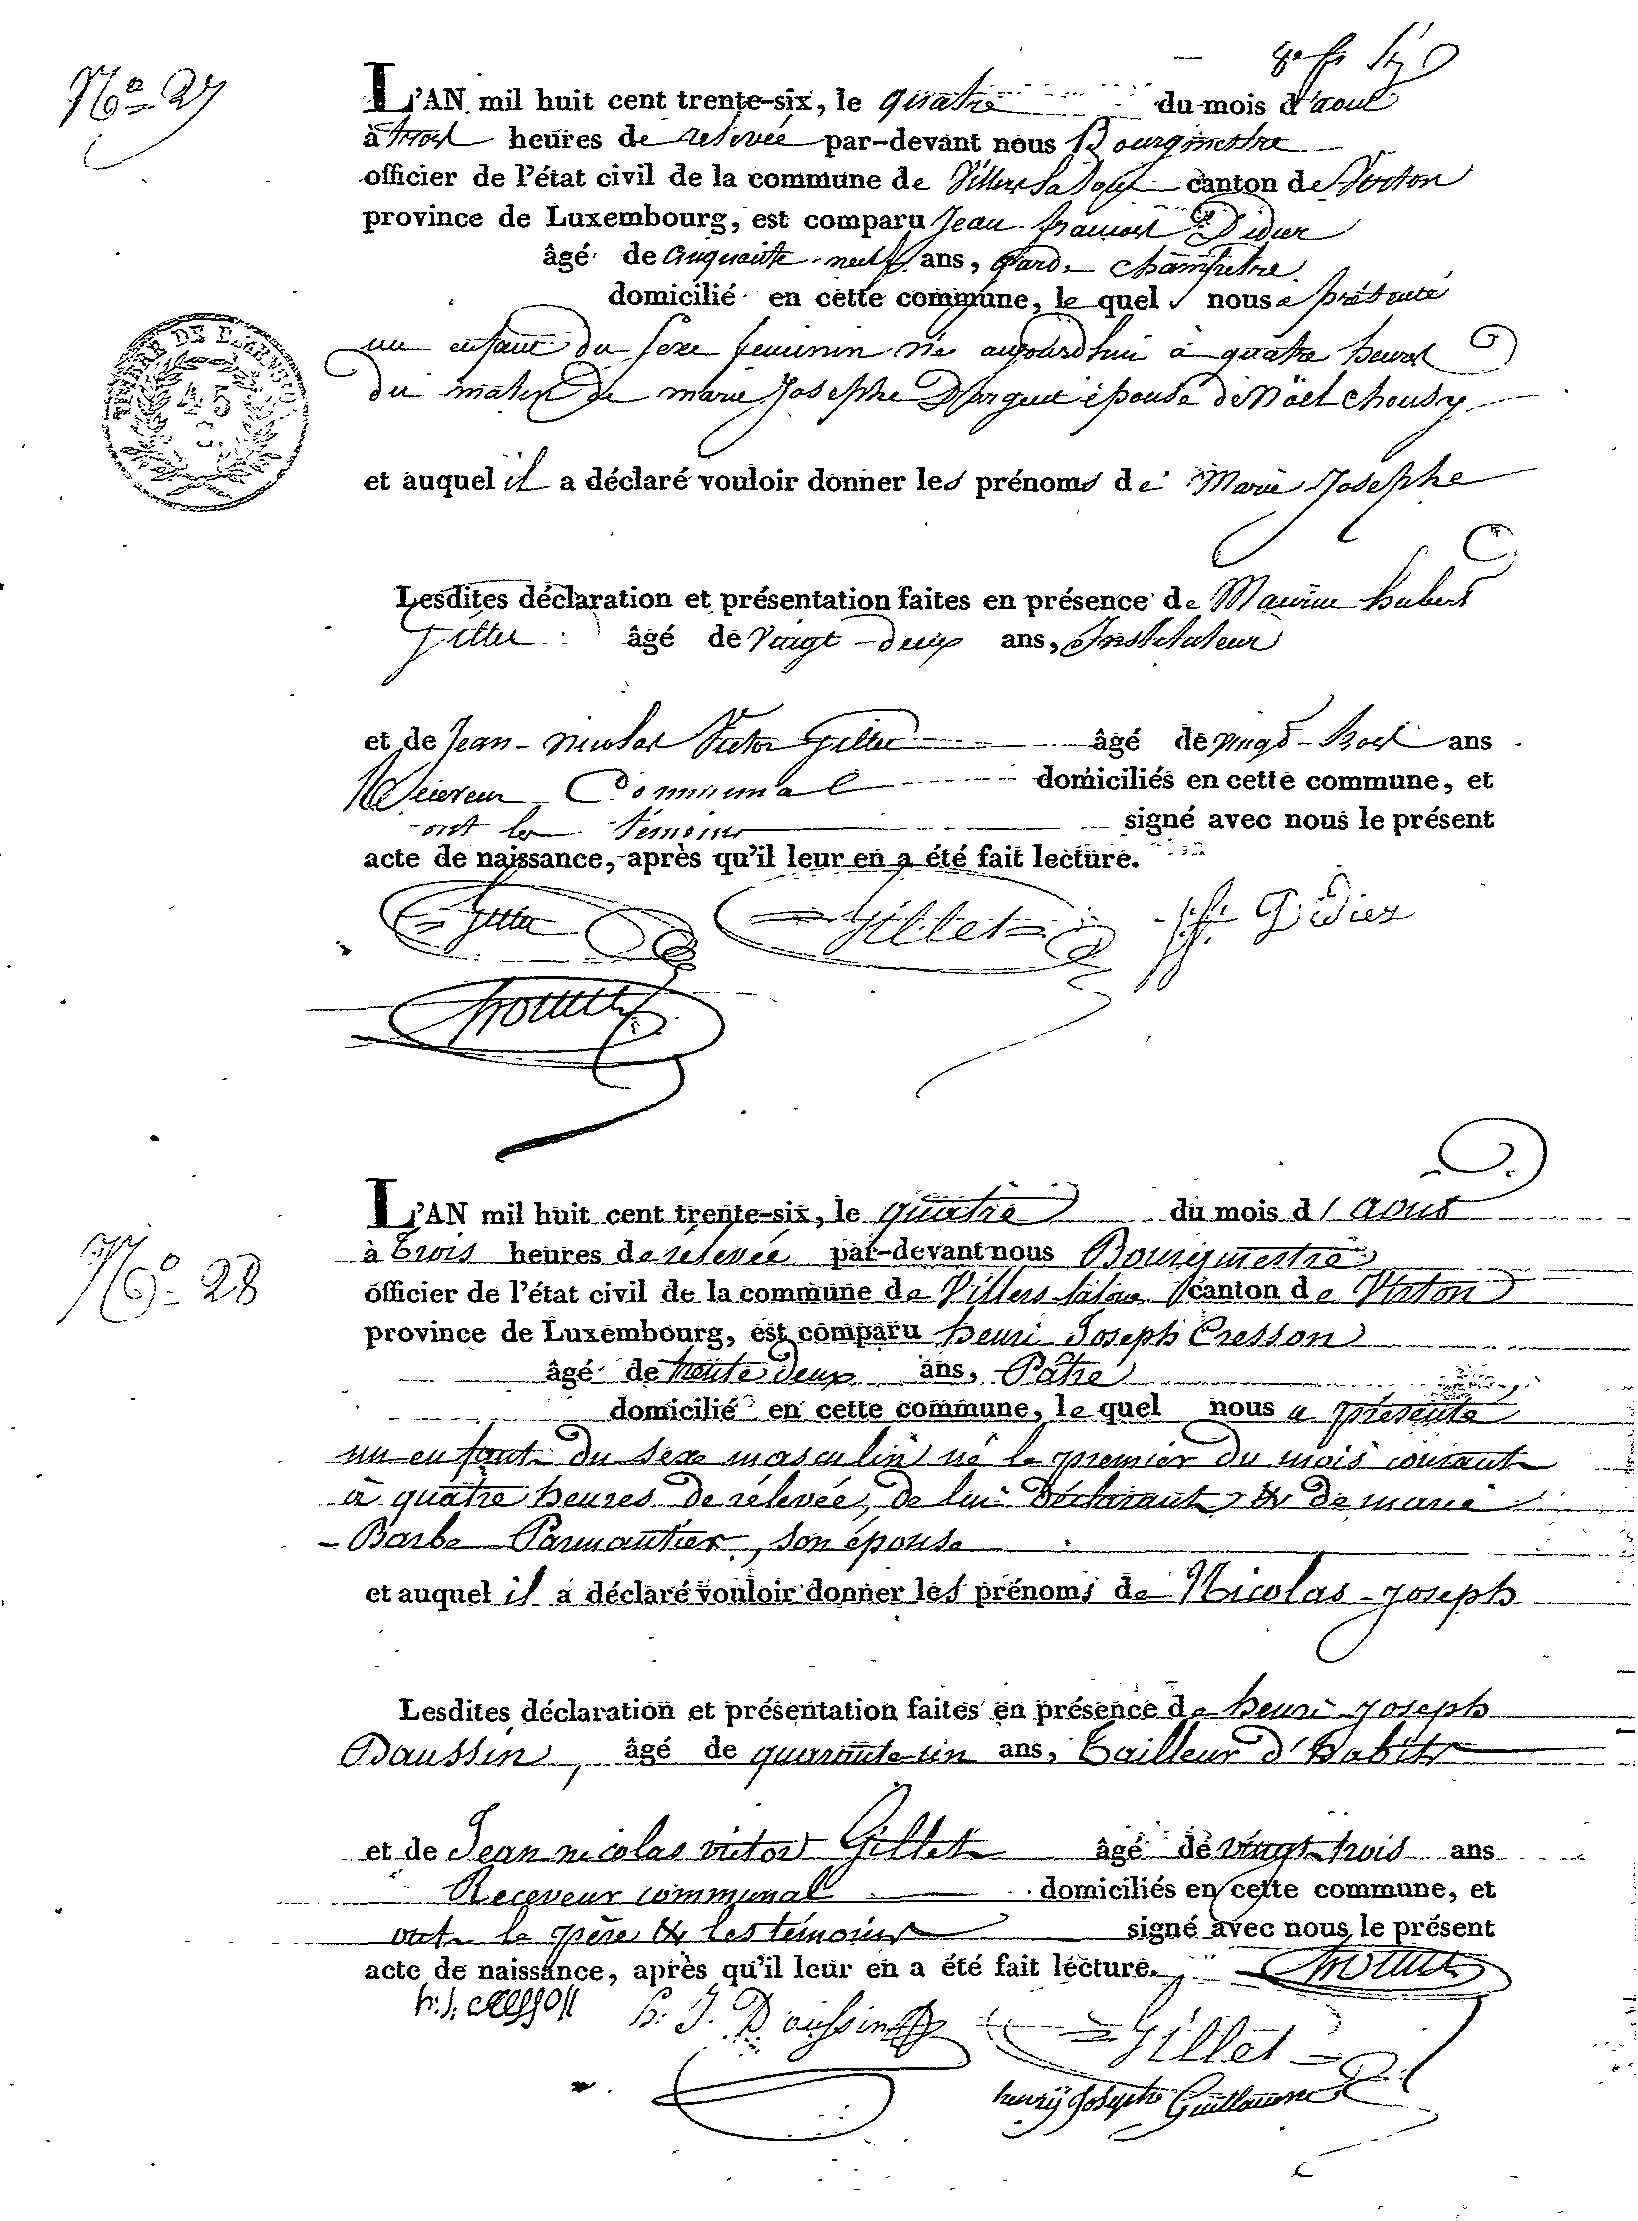 No 27
L'AN mil huit cent trente-six, le quatre du mois d'aout
à trois heures de relevée par-devant nous Bourgmestre
officier de l'état civil de la commune de Villers la loue canton de Virton
province de Luxembourg, est comparu Jean francois Didier
âgé de Cinquante neuf ans, garde champetre
domicilié en cette commune, le quel nous a présenté
un enfant du sexe feminin née aujourdhui à quatre heures
du matin de marie Josephe épouse de Nöel chousy
et auquel il a déclaré vouloir donner les prénoms de Marie Josephe
Lesdites déclaration et présentation faites en présence de hubert
Gillet âgé de Vingt-deux ans, Instituteur
et de Jean-nicolas Victor Gillet âgé de vingt-trois ans
Receveur Communal domiciliés en cette commune, et
ont les témoins signé avec nous le présent
acte de naissance, après qu'il leur en a été fait lecture.
Gillet Gillet j. f. Didier
L'AN mil huit cent trente-six, le quatre du mois d'aout
No. 28
à trois heures de rélevée par-devant nous Bourgmestre
officier de l'état civil de la commune de Villers lalou canton de Virton
province de Luxembourg, est comparu henri Joseph Cresson
âgé de trente deux ans, Pâtre
domicilié en cette commune, le quel nous a présenté
un enfant du sexe masculin né le premier du mois courant
à quatre heures de rélevée, de lui déclarant & de marie
-Barbe Parmantier, son épouse
et auquel il a déclaré vouloir donner les prénoms de Nicolas-joseph
Lesdites déclaration et présentation faites en présence de henri joseph
Daussin, âgé de quarante-un ans, tailleur d'habits
et de Jean nicolas victor Gillet âgé de vingt-trois ans
Receveur communal domiciliés en cette commune, et
ont le père & les témoins signé avec nous le présent
acte de naissance, après qu'il leur en a été fait lecture.
h. j. cresson h. J. Daussin Gillet
henrÿ Josephe Guillaume